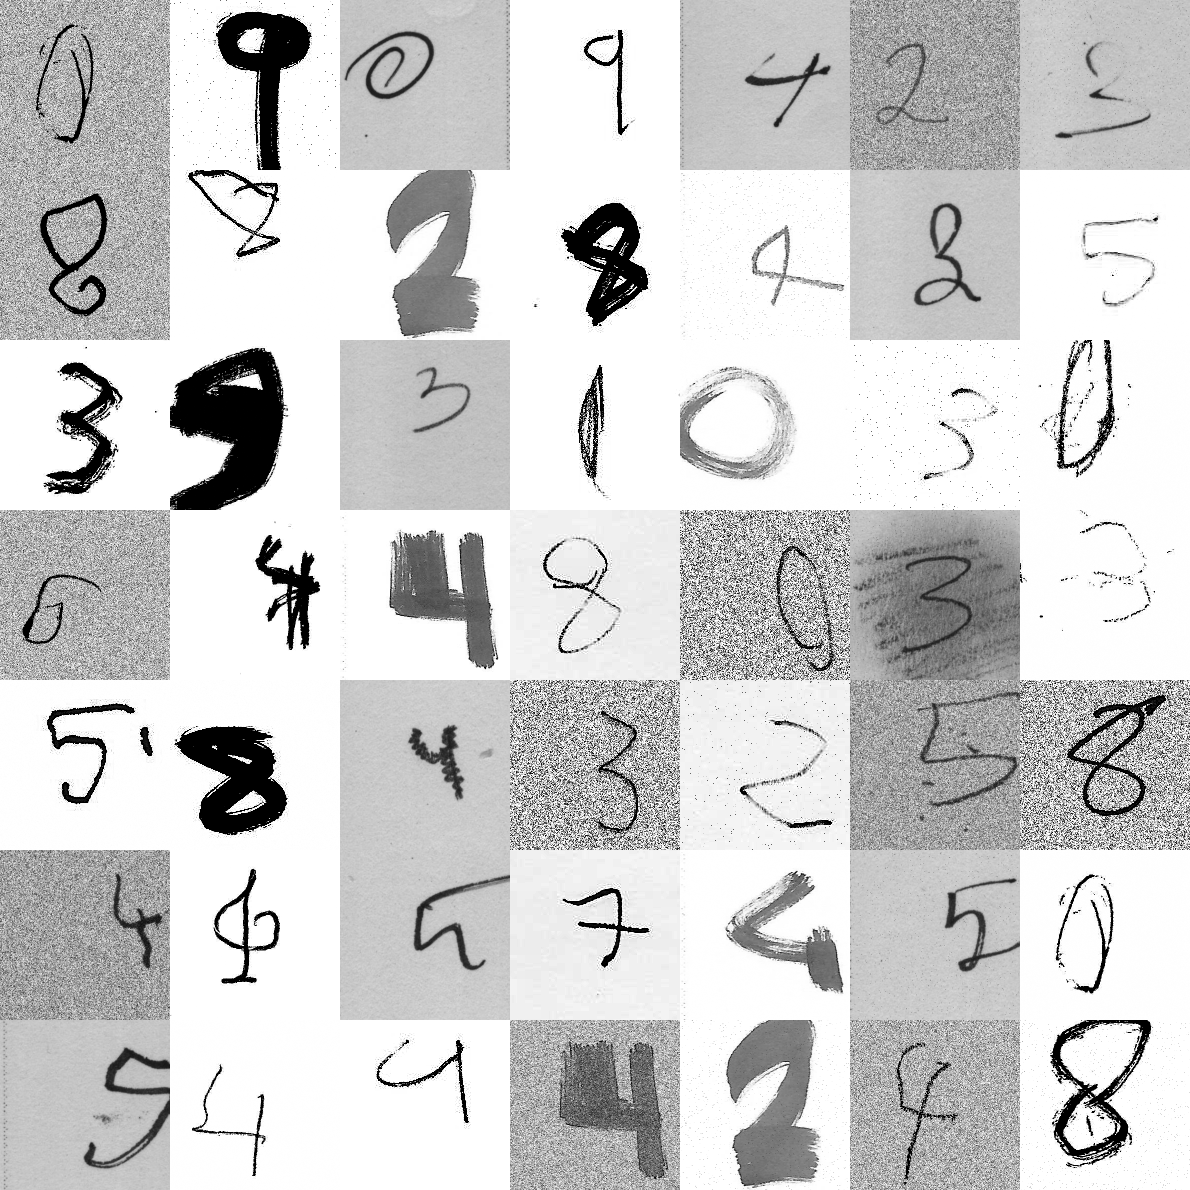 0 9 0 9 4 2 3
8 8 2 8 4 2 5
3 9 3 1 0 3 0
6 4 4 8 0 3 3
5 8 4 3 2 5 8
4 5 7 4 5 0
5 4 4 4 2 4 8